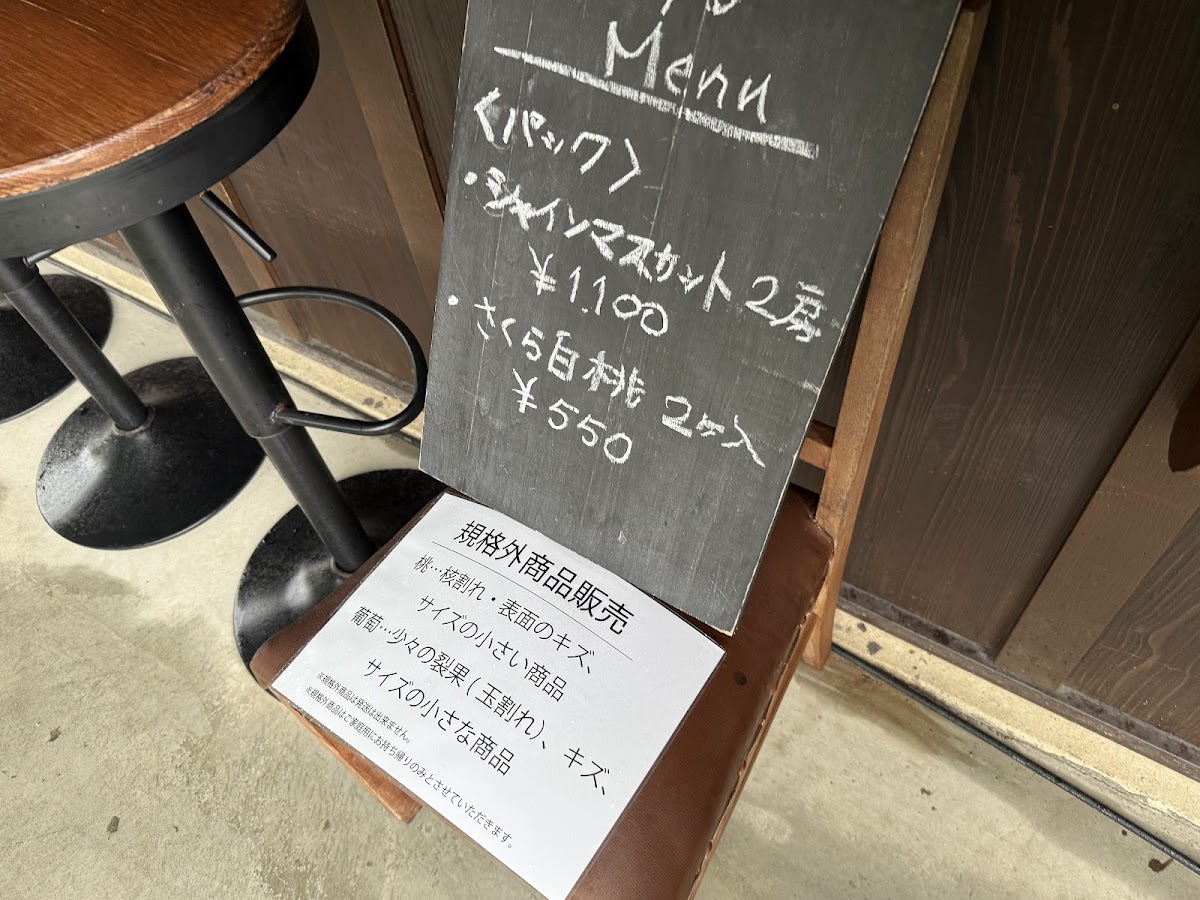 Menu
〈パック〉
・シャインマスカット 2房
¥1,100
・さくら白桃 2ヶ入
¥550
規格外商品販売
桃…核割れ・表面のキズ、
サイズの小さい商品
葡萄…少々の裂果(玉割れ)、キズ、
サイズの小さな商品
※規格外商品は発送は出来ません。
※規格外商品はご家庭用にお持ち帰りのみとさせていただきます。